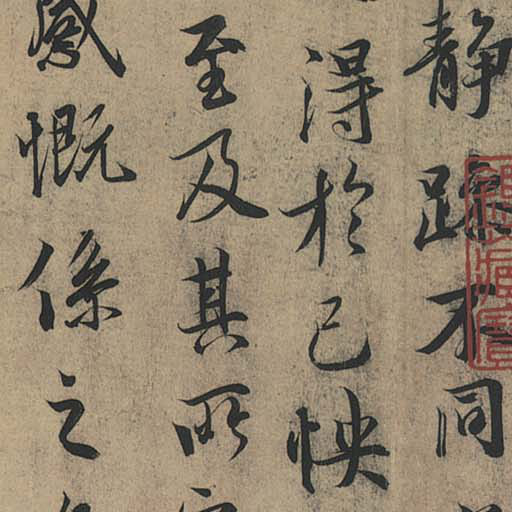 静躁不同
得於己怏
至及其所
感慨係之